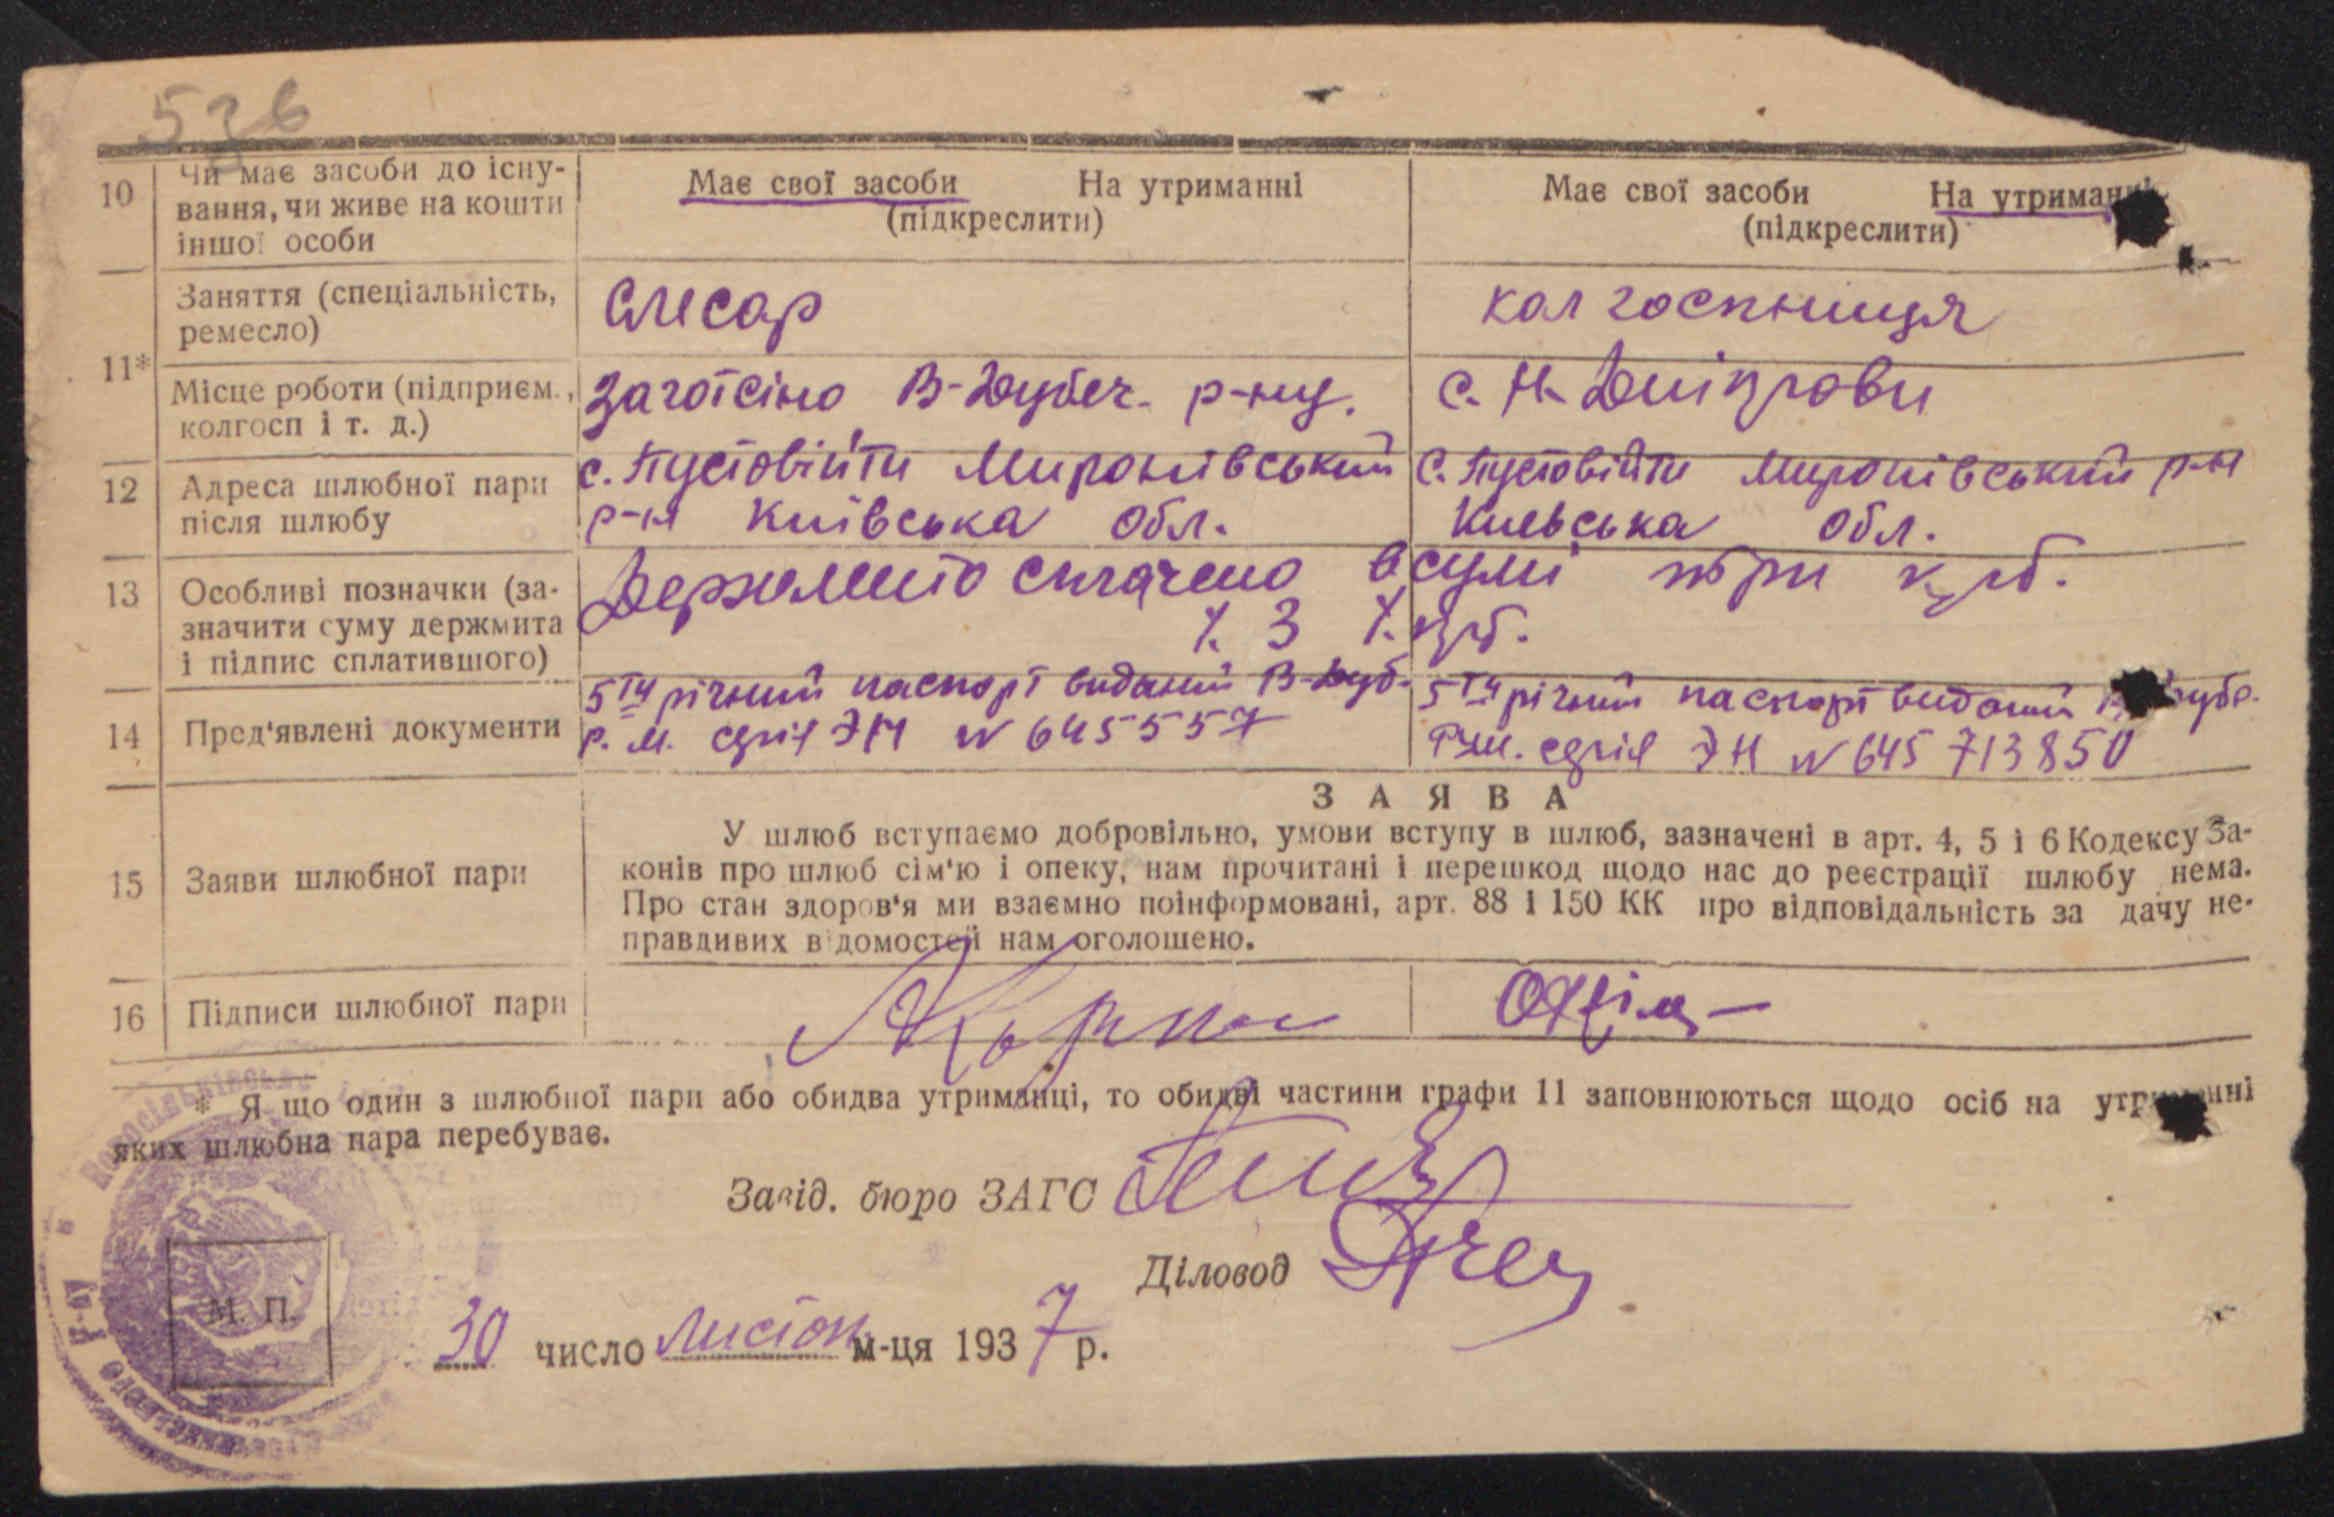 536
10 Чи має засоби до існу-
вання, чи живе на кошти
іншої особи
Має свої засоби На утриманні
(підкреслити)
Має свої засоби На утриманні
(підкреслити)
11*
Заняття (спеціальність,
ремесло)
Слесар
колгоспниця
Місце роботи (підприєм.,
колгосп і т. д.)
Заготсіно В-Дубеч. р-ну.
с. Н-Дніпрови
12 Адреса шлюбної пари
після шлюбу
с. Пустовійти Миронівський
р-н Київська обл.
с. Пустовійти Миронівський р-н
Киевська обл.
13 Особливі позначки (за-
значити суму держмита
і підпис сплатившого)
Держмито сплачено в сумі три крб.
3 крб.
14 Пред'явлені документи
5ти річний паспорт виданий В-Дуб.
р. м. серія ЭН № 645557
5ти річний паспорт виданий
серія ЭН № 645 713850
15 Заяви шлюбної пари
ЗАЯВА
У шлюб вступаємо добровільно, умови вступу в шлюб, зазначені в арт. 4, 5 і 6 Кодексу За-
конів про шлюб сім'ю і опеку, нам прочитані і перешкод щодо нас до реєстрації шлюбу нема.
Про стан здоров'я ми взаємно поінформовані, арт. 88 і 150 КК про відповідальність за дачу не-
правдивих відомостей нам оголошено.
16 Підписи шлюбної пари
* Я що один з шлюбної пари або обидва утриманці, то обидві частини графи 11 заповнюються щодо осіб на утриманні
яких шлюбна пара перебуває.
Завід. бюро ЗАГС
Діловод
М. П.
30 число листоп. м-ця 1937 р.